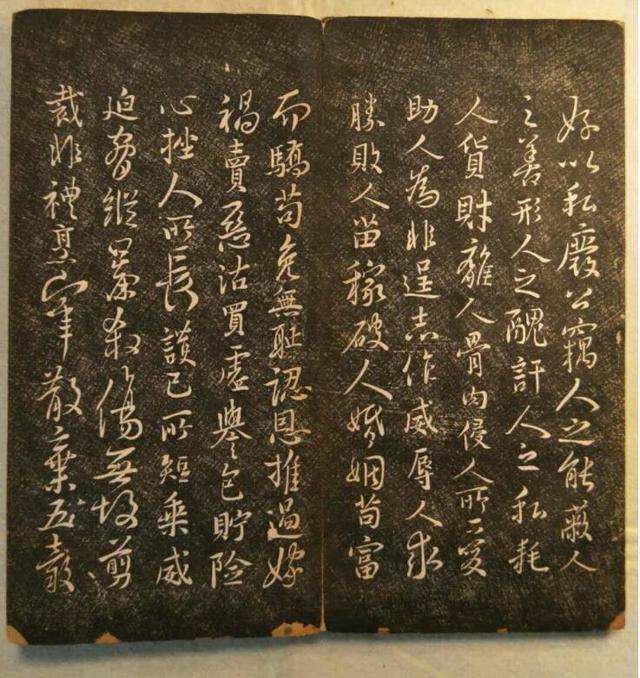 好以私廢公竊人之能蔽人
之善形人之醜訐人之私耗
人貨財離人骨肉侵人所愛
助人為非逞志作威辱人求
勝敗人苗稼破人婚姻苟富
而驕苟免無恥認恩推過嫁
禍賣惡沽買虛譽包貯險
心挫人所長護己所短乘威
迫脅縱暴殺傷無故剪
裁非禮烹宰散棄五穀